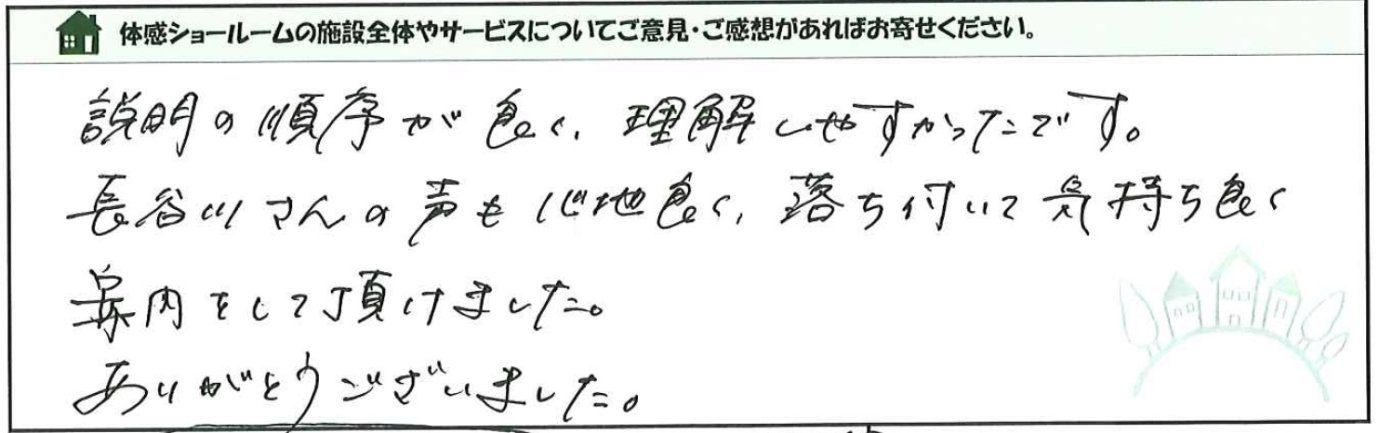 体感ショールームの施設全体やサービスについてご意見・ご感想があればお寄せください。
説明の順序が良く、理解しやすかったです。
長谷川さんの声も心地良く、落ち付いて気持ち良く
案内をして頂けました。
ありがとうございました。